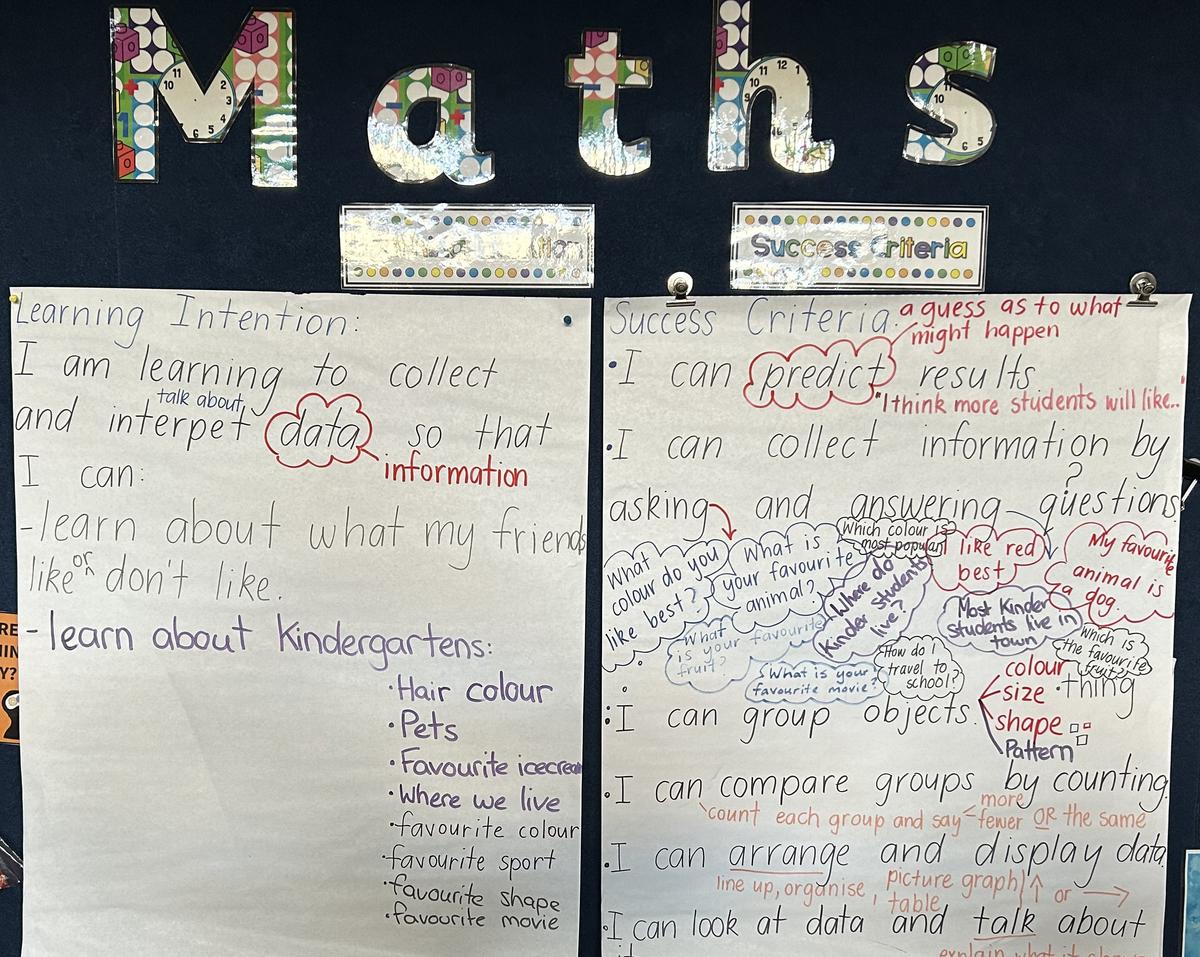 Maths
Success Criteria
Learning Intention:
I am learning to collect
talk about
and interpet data so that
information
I can:
-learn about what my friends
like or don't like.
- learn about Kindergartens:
·Hair colour
·Pets
·Favourite icecream
·Where we live
·favourite colour
·favourite sport
·favourite shape
·favourite movie
Success Criteria:
a guess as to what
might happen
·I can predict results
"I think more students will like.."
·I can collect information by
?
asking and answering questions
What
colour do you
like best?
What is
your favourite
animal?
Which colour is
most popular
I like red
best
My favourite
animal is
a dog.
Where do
Kinder students
live?
Most Kinder
students live in
town
What
is your favourite
fruit?
What is your
favourite movie?
How do I
travel to
school?
Which is
the favourite
fruit?
·I can group objects.
colour
size
·thing
shape
Pattern
·I can compare groups by counting
count each group and say
more
fewer OR the same
·I can arrange and display data
line up, organise,
picture graph
table
or
·I can look at data and talk about
explain what it